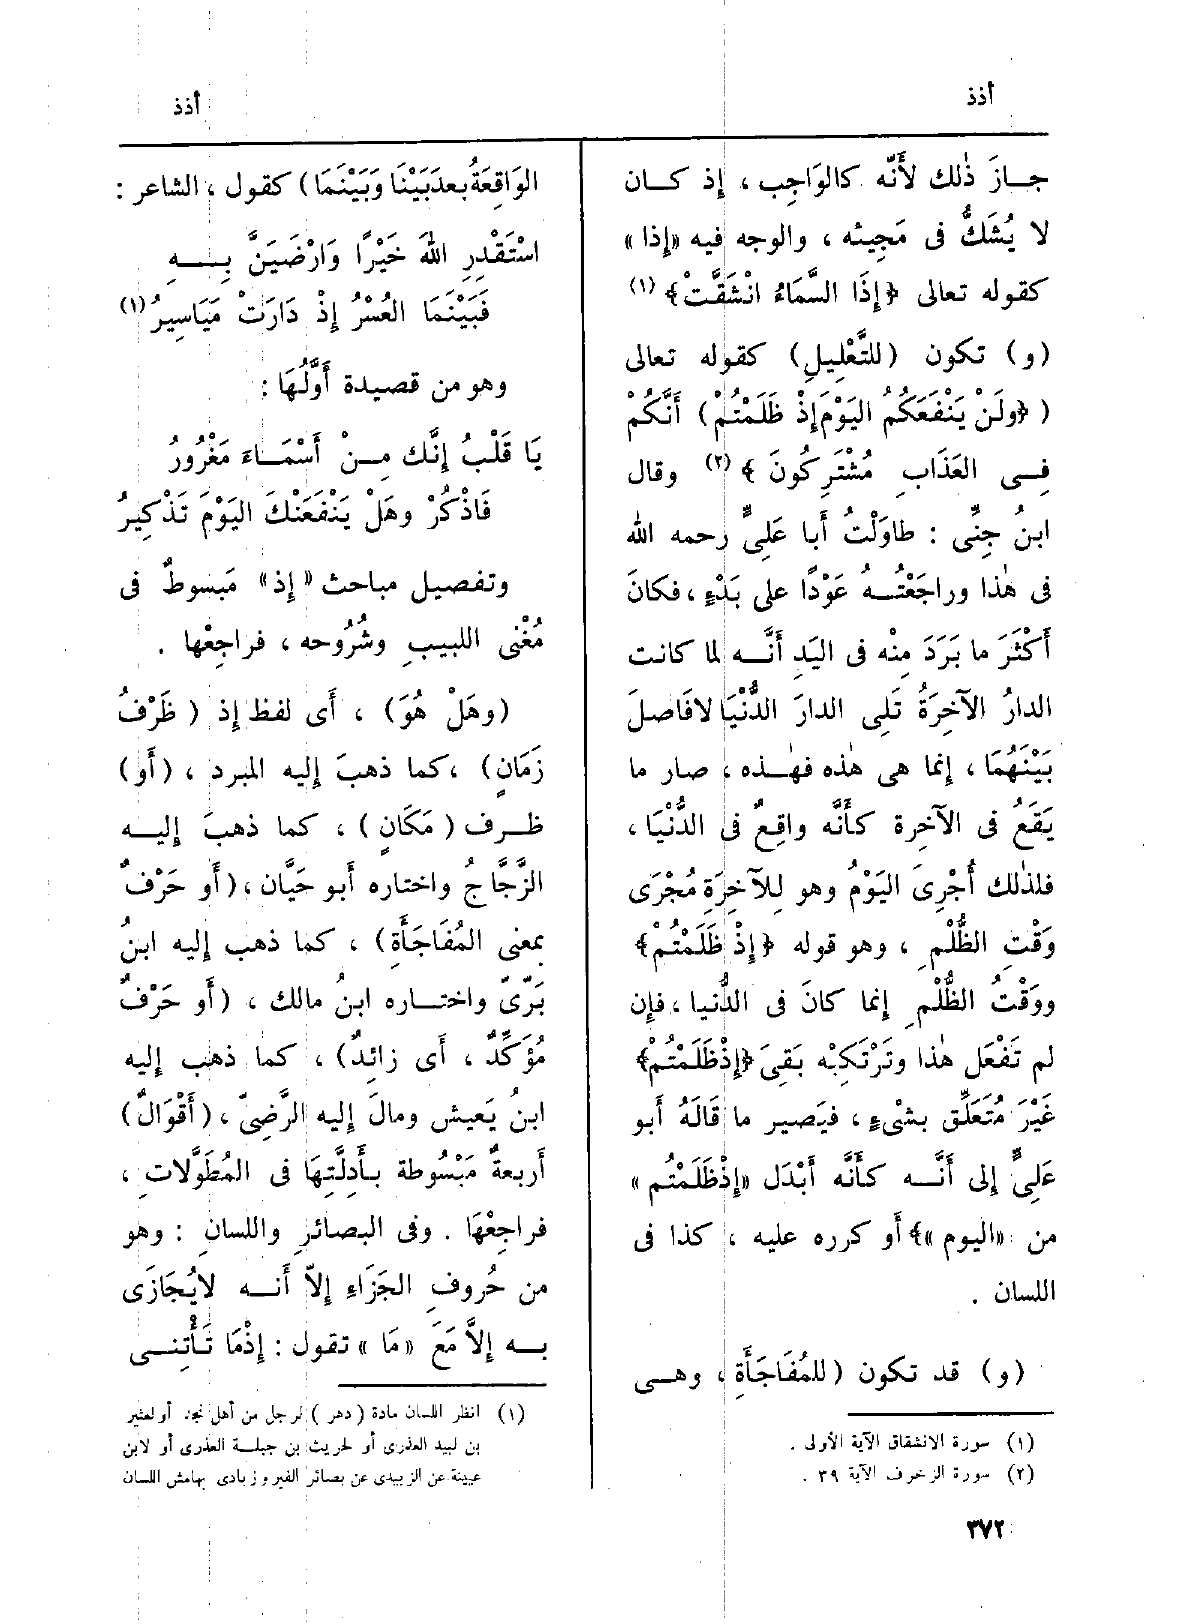 أذذ
أذذ
جازَ ذٰلك لأَنَّه كالوَاجِب ، إذ كان
لا يُشَكُّ فى مَجِيئه ، والوجه فيه «إذا»
كقوله تعالى ﴿إِذَا السَّمَاءُ انْشَقَّتْ﴾ (١)
(و) تكون (للتَّعْلِيلِ) كقوله تعالى
( ﴿ولَنْ يَنْفَعَكُمُ اليَوْمَ إِذْ ظَلَمْتُمْ) أَنَّكُمْ
فِى العَذَابِ مُشْتَرِكُونَ﴾ (٢) وقال
ابنُ جِنِّى : طاوَلْتُ أَبا عَلِىٍّ رحمه الله
فى هٰذا وراجَعْتُه عَوْدًا على بَدْءٍ ، فكانَ
أَكْثَرَ ما بَرَدَ مِنْه فى اليَدِ أَنَّه لما كانت
الدارُ الآخِرَةُ تَلِى الدارَ الدُّنْيَا لافَاصِلَ
بَيْنَهُمَا ، إنما هى هٰذه فهٰذه ، صار ما
يَقَعُ فى الآخِرة كأَنَّه واقِعٌ فى الدُّنْيَا ،
فلذٰلك أُجْرِىَ اليَوْمُ وهو لِلآخِرَةِ مُجْرَى
وَقْتِ الظُّلْمِ ، وهو قوله ﴿إِذْ ظَلَمْتُمْ﴾
ووَقْتُ الظُّلْمِ إنما كانَ فى الدُّنيا ، فإِن
لم تَفْعَل هٰذا وتَرْتَكِبْه بَقِىَ ﴿إِذْظَلَمْتُمْ﴾
غَيْرَ مُتَعَلِّقٍ بشىْءٍ ، فيَصير ما قَالَهُ أَبو
عَلِىٍّ إلى أَنَّه كأَنَّه أَبْدَل «إِذْظَلَمْتُم»
من «اليوم»﴾ أَو كرره عليه ، كذا فى
اللسان .
(و) قد تكون (للمُفَاجَأَةِ ، وهى
(١) سورة الانشقاق الآية الأولى .
(٢) سورة الزخرف الآية ٣٩ .
الوَاقِعَةُ بعدَ بَيْنَا وَبَيْنَمَا) كقول ، الشاعر :
اسْتَقْدِرِ اللهَ خَيْرًا وَارْضَيَنَّ بِه
فَبَيْنَمَا العُسْرُ إِذْ دَارَتْ مَيَاسِيرُ (١)
وهو من قصيدة أَوَّلُهَا :
يَا قَلْبُ إِنَّك مِنْ أَسْمَاءَ مَغْرُورُ
فَاذْكُرْ وهَلْ يَنْفَعَنْكَ اليَوْمَ تَذْكِيرُ
وتفصيل مباحث «إذ» مَبسوطٌ فى
مُغْنِى اللبيبِ وشُرُوحه ، فراجِعْها .
(وهَلْ هُوَ) ، أَى لفظ إذ ( ظَرْفُ
زَمَانٍ) ، كما ذهبَ إليه المبرد ، (أَو)
ظرف (مَكَانٍ) ، كما ذهبَ إليه
الزَّجَّاجُ واختاره أَبو حَيَّان ، (أَو حَرْفٌ
بمعنى المُفَاجَأَةِ) ، كما ذهب إليه ابنُ
بَرِّىّ واختاره ابنُ مالك ، (أَو حَرْفٌ
مُؤَكِّدٌ ، أَى زائِدٌ) ، كما ذهب إليه
ابنُ يَعيش ومالَ إليه الرَّضِىّ ، (أَقْوَالٌ)
أَربعةٌ مَبْسُوطة بأَدِلَّتِهَا فى المُطَوَّلاتِ ،
فراجِعْهَا . وفى البصائرِ واللسانِ : وهو
من حُروفِ الجَزَاءِ إلاّ أَنه لايُجَازَى
به إلاَّ مَعَ «مَا» تقول : إِذْمَا تَأْتِنِى
(١) انظر اللسان مادة (دهر) لرجل من أهل نجد أو لعثير
بن لبيد العذرى أو لحريث بن جبلة العذرى أو لابن
عيينة عن الزبيدى عن بصائر الفيروزبادى بهامش اللسان
٣٧٢